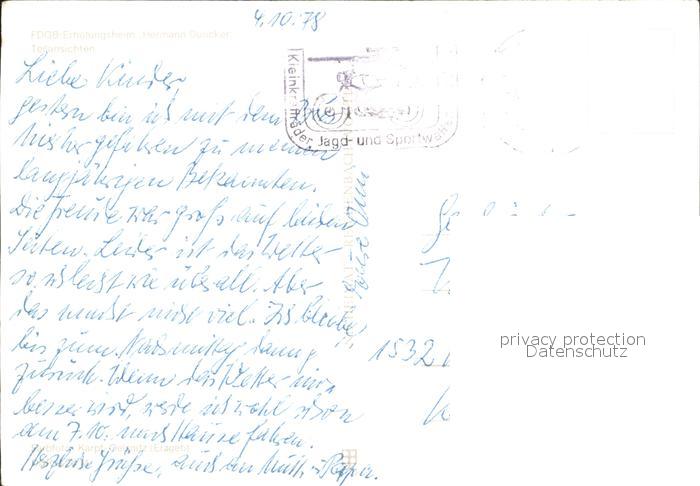 4.10.78
FDGB-Erholungsheim "Hermann Duncker"
Teilansichten
Kleinkrafträder, Jagd- und Sportwaffen
Liebe Kinder,
gestern bin ich mit dem
hierher gefahren zu meinen
langjährigen Bekannten.
Die Freude war groß auf beiden
Seiten. Leider ist das Wetter
so schlecht wie überall. Aber
das macht nicht viel. Ich bleibe
bis zum Nachmittag dann
zurück. Wenn das Wetter nicht
besser wird, werde ich wohl schon
am 7.10. nach Hause fahren.
Herzliche Grüße, auch an Mutti u. Papa.
1532
privacy protection
Datenschutz